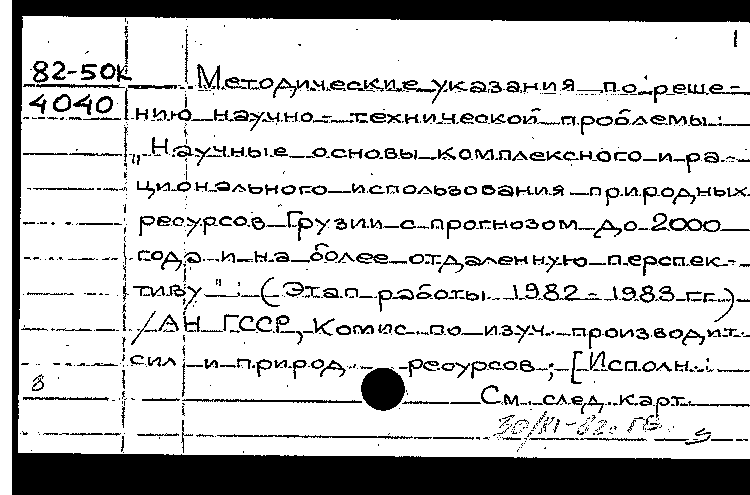 1
82-50к Методические указания по реше-
4040 нию научно-технической проблемы:
„Научные основы комплексного и ра-
ционального использования природных
ресурсов Грузии с прогнозом до 2000
года и на более отдаленную перспек-
тиву": (Этап работы 1982-1983 гг.)
/АН ГССР, Комис. по изуч. производит.
сил и природ. ресурсов; [Исполн.:
8 См. след. карт.
30/XI-82.